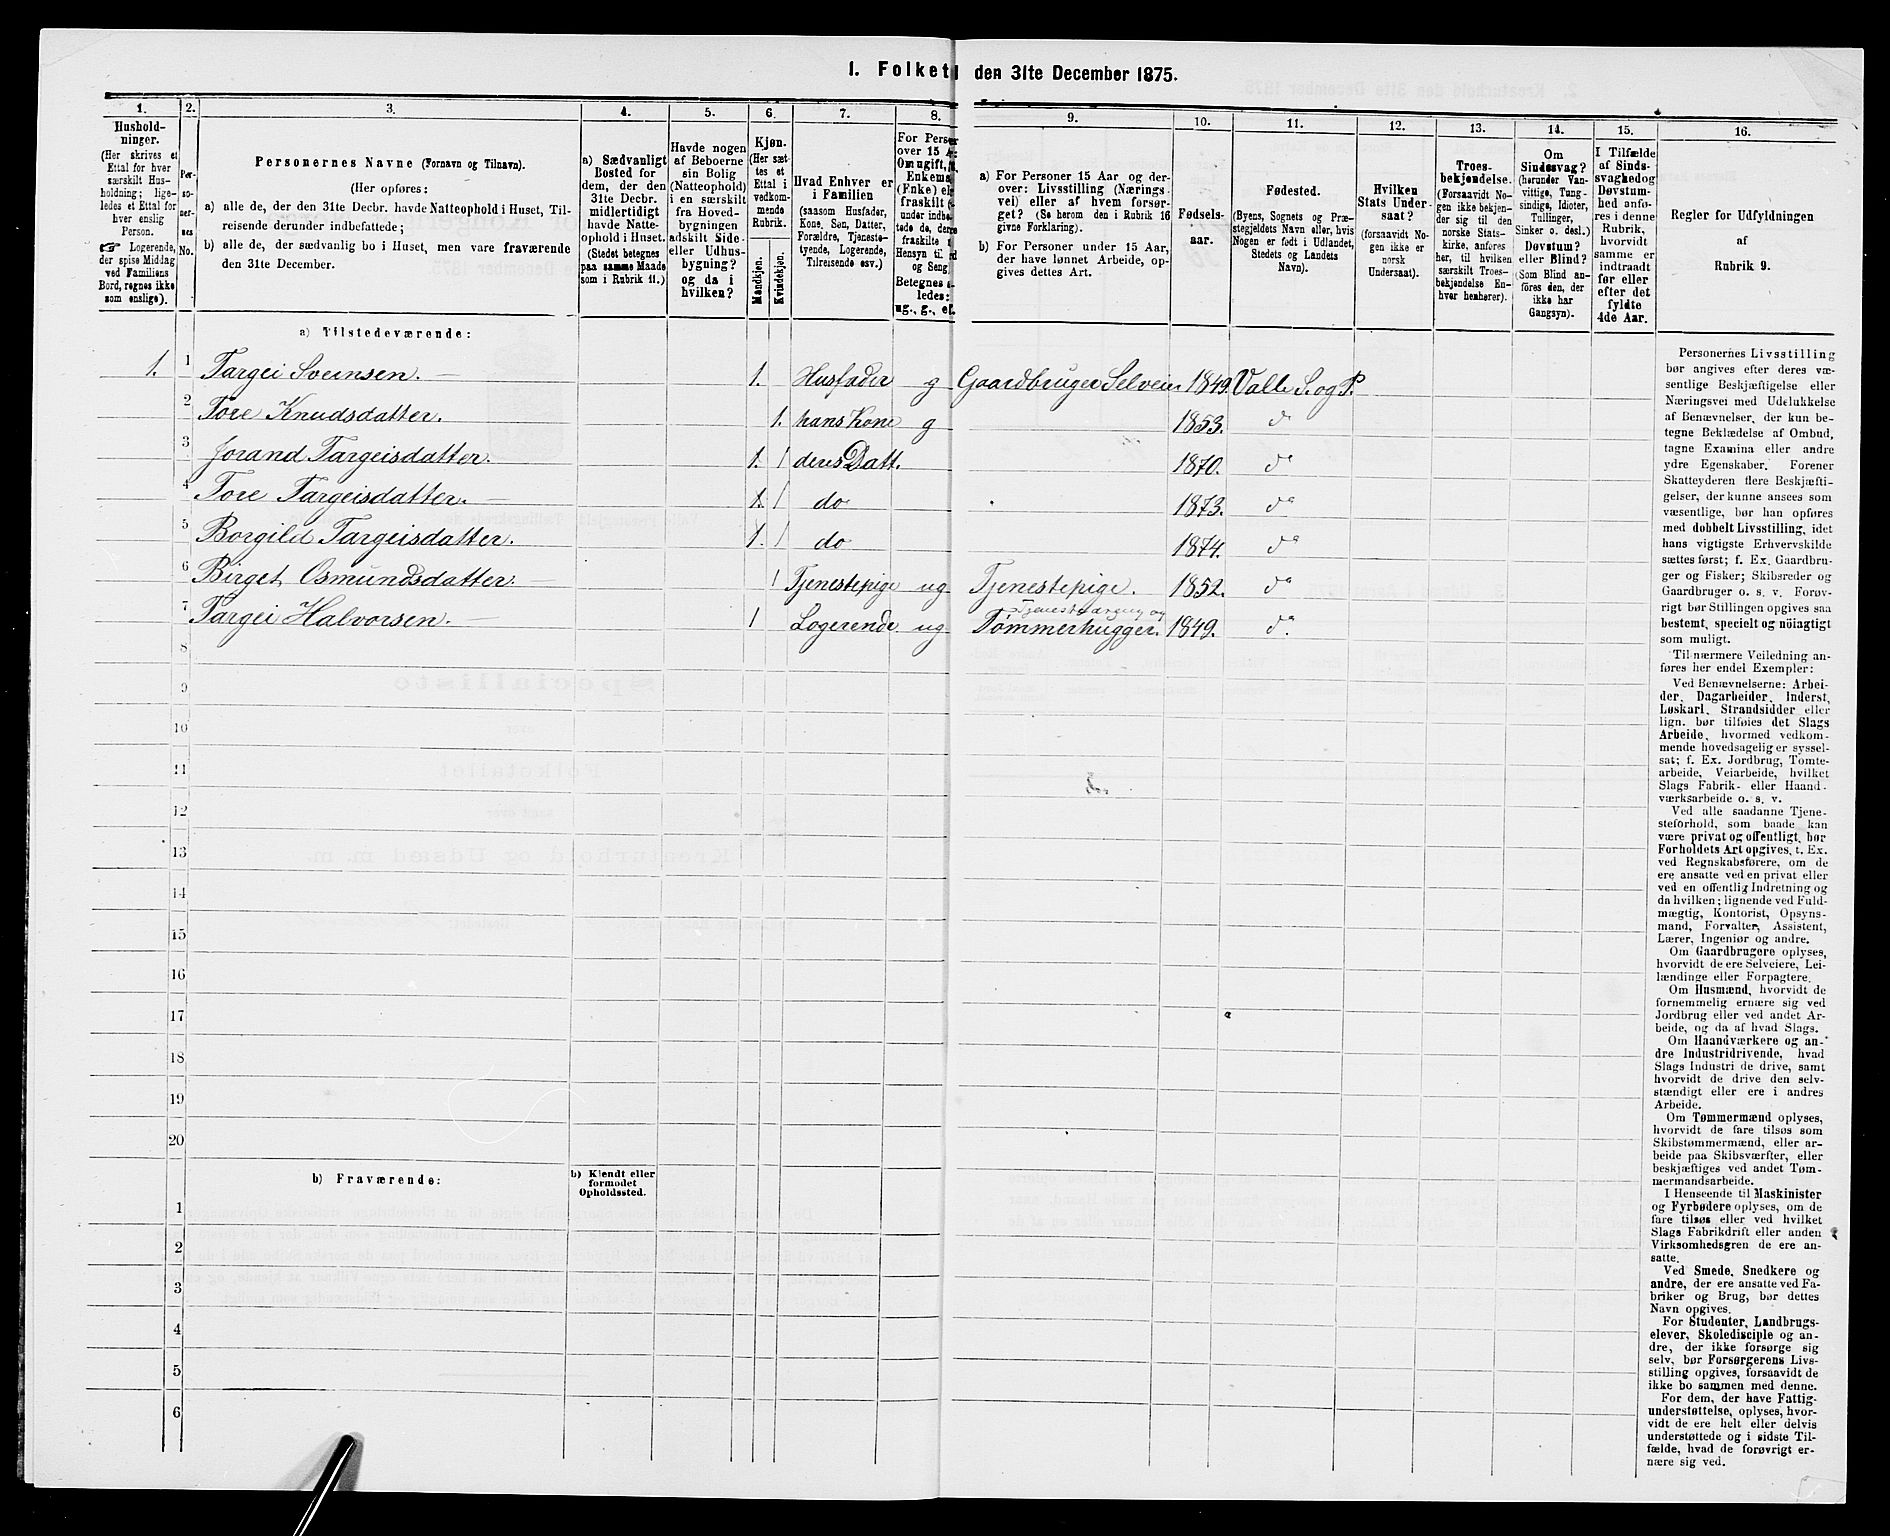 I. Folket den 31te December 1875.
1. 2. 3. 4. 5. 6. 7. 8. 9. 10. 11. 12. 13. 14. 15. 16.
Hushold-
ninger.
(Her skrives et
Ettal for hver
særskilt Hus-
holdning; lige-
ledes et Ettal for
hver enslig
Person.
☞ Logerende,
der spise Middag
ved Familiens
Bord, regnes ikke
som enslige).
Per-
so-
ner-
nes
No.
Personernes Navne (Fornavn og Tilnavn).
(Her opføres:
a) alle de, der den 31te Decbr. havde Natteophold i Huset, Til-
reisende derunder indbefattede;
b) alle de, der sædvanlig bo i Huset, men vare fraværende
den 31te December.
a) Sædvanligt
Bosted for
dem, der den
31te Decbr.
midlertidigt
havde Natte-
ophold i Huset.
(Stedet betegnes
paa samme Maade
som i Rubrik 11.)
Havde nogen
af Beboerne
sin Bolig
(Natteophold)
i en særskilt
fra Hoved-
bygningen
adskilt Side-
eller Udhus-
bygning?
og da i
hvilken?
Kjøn.
(Her sæt-
tes et
Ettal i
vedkom-
mende
Rubrik.
Mandkjøn.
Kvindekjøn.
Hvad Enhver er
i Familien
(saasom Husfader,
Kone, Søn, Datter,
Forældre, Tjeneste-
tyende, Logerende,
Tilreisende osv.)
For Perso
over 15 A
Om ugift,
Enkema
(Enke) el
fraskilt
under indbe
tede de, der
fraskilte
Hensyn til
og Seng
Betegnes
ledes:
ug., g., e
a) For Personer 15 Aar og der-
over: Livsstilling (Nærings-
vei) eller af hvem forsør-
get? (Se herom den i Rubrik 16
givne Forklaring).
b) For Personer under 15 Aar,
der have lønnet Arbeide, op-
gives dettes Art.
Fødsels-
aar.
Fødested.
(Byens, Sognets og Præ-
stegjeldets Navn eller, hvis
Nogen er født i Udlandet,
Stedets og Landets
Navn).
Hvilken
Stats Under-
saat?
(forsaavidt No-
gen ikke er
norsk
Undersaat).
Troes-
bekjendelse.
(Forsaavidt No-
gen ikke bekjen-
der sig til den
norske Stats-
kirke, anføres
her, til hvilken
særskilt Troes-
bekjendelse En-
hver henhører).
Om
Sindssvag?
(herunder Van-
vittige, Tung-
sindige, Idioter,
Tullinger,
Sinker o. desl.)
Døvstum?
eller Blind?
(Som Blind an-
føres den, der
ikke har
Gangsyn).
I Tilfælde
af Sinds-
svaghed og
Døvstum-
hed anfø-
res i denne
Rubrik,
hvorvidt
samme er
indtraadt
før eller
efter det
fyldte
4de Aar.
Regler for Udfyldningen
af
Rubrik 9.
a) Tilstedeværende:
1. 1 Targei Sveinsen. — 1. Husfader g Gaardbruger Selveier 1849. Valle S. og P.
2 Tore Knudsdatter. 1. hans Kone g 1853. do
3 Jorand Targeisdatter. 1. 1 deres Datt. 1870. do
4 Tore Targeisdatter. — 1. 1 do 1873. do
5 Borgild Targeisdatter. 1. 1 do 1874. do
6 Birget Osmundsdatter. — 1 Tjenestepige ug Tjenestepige. 1852. do
7 Targei Halvorsen. — 1 Logerende ug Tømmerhugger. 1849. do.
8
9
10
11
12
13
14
15
16
17
18
19
20
b) Fraværende:
b) Kjendt eller
formodet
Opholdssted.
1
2
3
4
5
6
Personernes Livsstilling
bør angives efter deres væ-
sentlige Beskjæftigelse eller
Næringsvei med Udelukkelse
af Benævnelser, der kun be-
tegne Beklædelse af Ombud,
tagne Examina eller andre
ydre Egenskaber. Forener
Skatteyderen flere Beskjæfti-
gelser, der kunne ansees som
væsentlige, bør han opføres
med dobbelt Livsstilling, idet
hans vigtigste Erhvervskilde
sættes først; f. Ex. Gaardbru-
ger og Fisker; Skibsreder og
Gaardbruger o. s. v. Forøv-
rigt bør Stillingen opgives saa
bestemt, specielt og nöiagtigt
som muligt.
Til nærmere Veiledning an-
føres her endel Exempler:
Ved Benævnelserne: Arbei-
der, Dagarbeider, Inderst,
Løskarl, Strandsidder eller
lign. bør tilføies det Slags
Arbeide, hvormed vedkom-
mende hovedsagelig er syssel-
sat; f. Ex. Jordbrug, Tomte-
arbeide, Veiarbeide, hvilket
Slags Fabrik- eller Haand-
værksarbeide o. s. v.
Ved alle saadanne Tjene-
steforhold, som baade kan
være privat og offentligt, bør
Forholdets Art opgives, t. Ex.
ved Regnskabsførere, om de
ere ansatte ved en privat eller
ved en offentlig Indretning og
da hvilken; lignende ved Fuld-
mægtig, Kontorist, Opsyns-
mand, Forvalter, Assistent,
Lærer, Ingeniør og andre.
Om Gaardbrugere oplyses,
hvorvidt de ere Selveiere, Lei-
lændinge eller Forpagtere.
Om Husmænd, hvorvidt de
fornemmelig ernære sig ved
Jordbrug eller ved andet Ar-
beide, og da af hvad Slags.
Om Haandværkere og an-
dre Industridrivende, hvad
Slags Industri de drive, samt
hvorvidt de drive den selv-
stændigt eller ere i andres
Arbeide.
Om Tømmermænd oplyses,
hvorvidt de fare tilsøs som
Skibstømmermænd, eller ar-
beide paa Skibsværfter, eller
beskjæftiges ved andet Tøm-
mermandsarbeide.
I Henseende til Maskinister
og Fyrbødere oplyses, om de
fare tilsøs eller ved hvilket
Slags Fabrikdrift eller anden
Virksomhedsgren de ere an-
satte.
Ved Smede, Snedkere og
andre, der ere ansatte ved Fa-
briker og Brug, bør dettes
Navn opgives.
For Studenter, Landbrugs-
elever, Skoledisciple og an-
dre, der ikke forsørge sig
selv, bør Forsørgerens Livs-
stilling opgives, forsaavidt de
ikke bo sammen med denne.
For dem, der have Fattig-
understøttelse, oplyses, hvor-
vidt de ere helt eller delvis
understøttede og i sidste Til-
fælde, hvad de forøvrigt er-
nære sig ved.